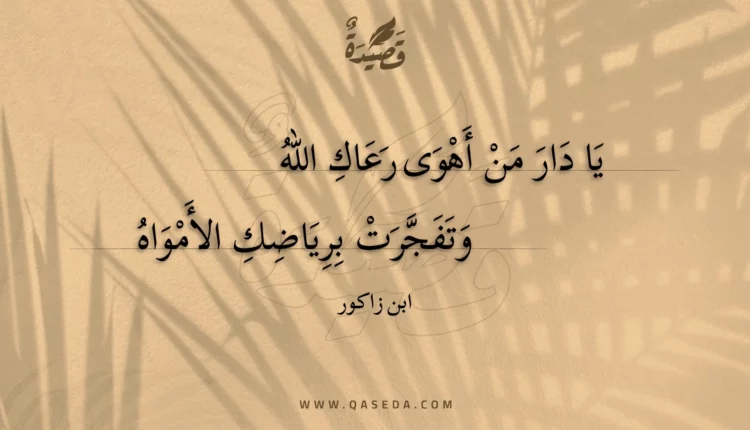 قَصِيْدَةٌ
يَا دَارَ مَنْ أَهْوَى رَعَاكِ اللهُ
وَتَفَجَّرَتْ بِرِيَاضِكِ الأَمْوَاهُ
ابن زاكور
WWW.QASEDA.COM